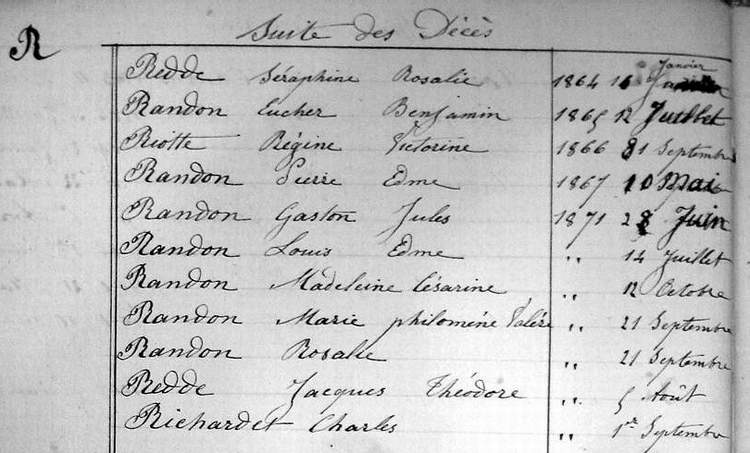 R
Suite des Décès
Redde Séraphine Rosalie 1864 Janvier
Randon Eucher Benjamin 1865 12 Juillet
Riotte Régine Victorine 1866 Septembre
Randon Pierre Edme 1867 10 Mai
Randon Gaston Jules 1871 28 Juin
Randon Louis Edme " 14 Juillet
Randon Madeleine Césarine " 12 Octobre
Randon Marie philoméne Valérie " 21 Septembre
Randon Rosalie " 21 Septembre
Redde Jacques Théodore " 5 Août
Richardet Charles " 1er Septembre